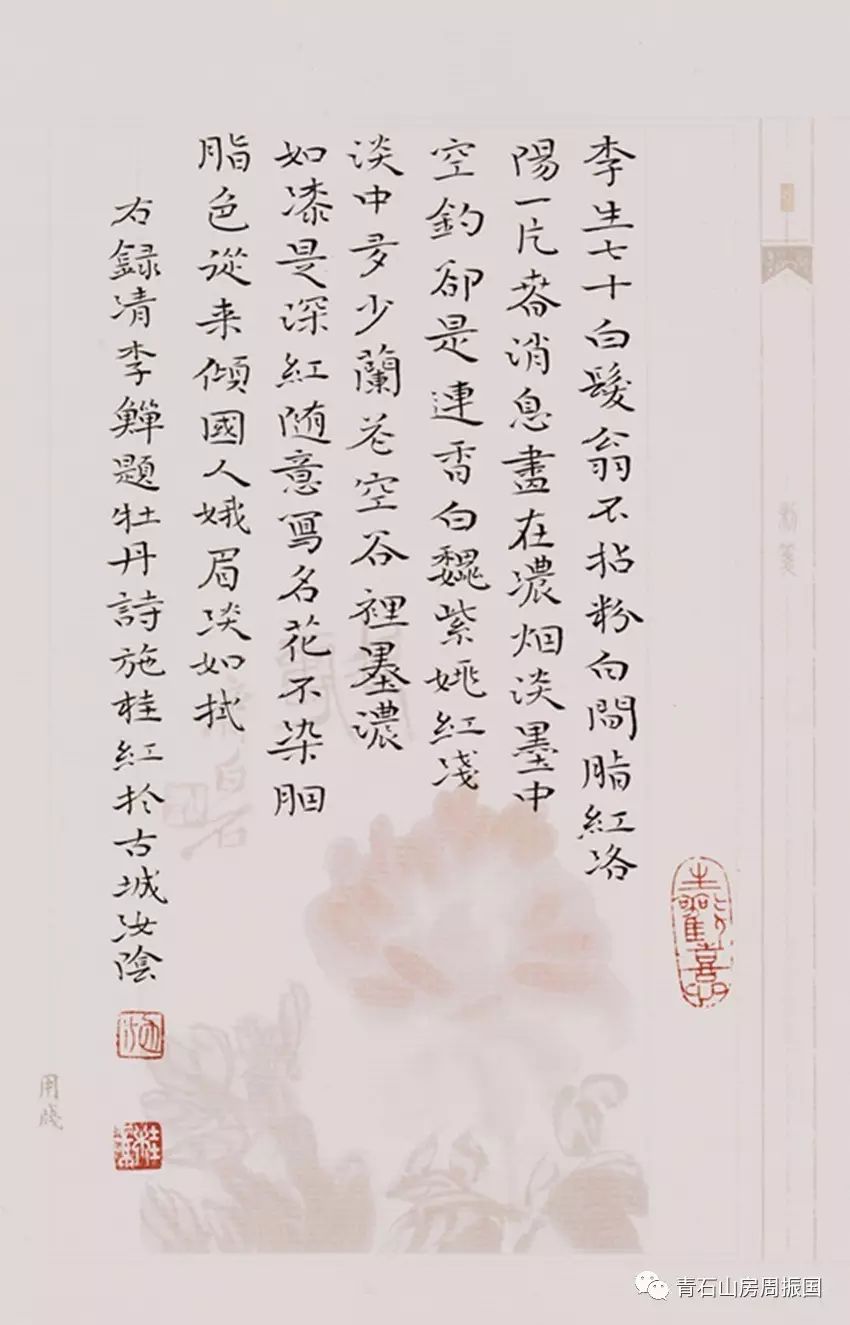 李生七十白髮翁不拈粉白間脂紅洛
陽一片春消息盡在濃烟淡墨中
空釣卻是連香白魏紫姚紅淺
淡中多少蘭花空谷裡墨濃
如漆是深紅随意寫名花不染胭
脂色從来傾國人娥眉淡如拭
右録清李鱓題牡丹詩施桂紅於古城汝陰
用箋
青石山房周振国